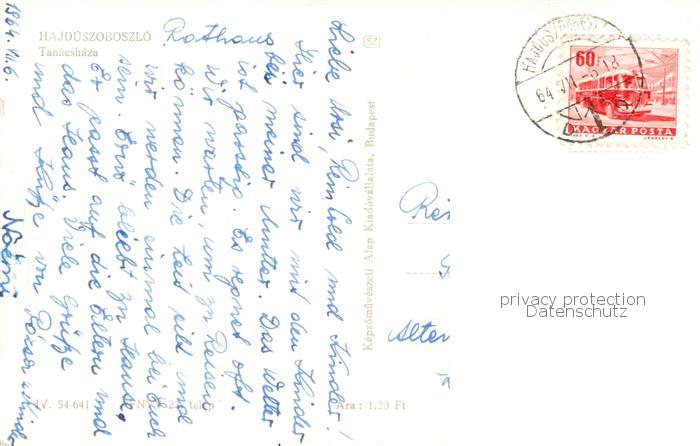 1964. VII. 6.
HAJDÚSZOBOSZLÓ Rathaus
Tanácsháza
Liebe Urdi, Reinhold und Kinder!
Hier sind wir mit den Kinder
bei meiner Mutter. Das Wetter
ist garstig. Es regnet oft.
Wir warten, um zu Reisen
können. Die Zeit eilt und
wir werden einmal bei Euch
sein. Ernö bleibt zu Hause,
Er passt auf die Eltern und
das Haus. Viele Grüße
und Küße von
Noémi
Képzőművészeti Alap Kiadóvállalata, Budapest
IV. 54-641
Ára: 1,20 Ft
HAJDÚSZOBOSZLÓ
64 VII -6 18
60f
MAGYAR POSTA
Rei
Alten
privacy protection
Datenschutz